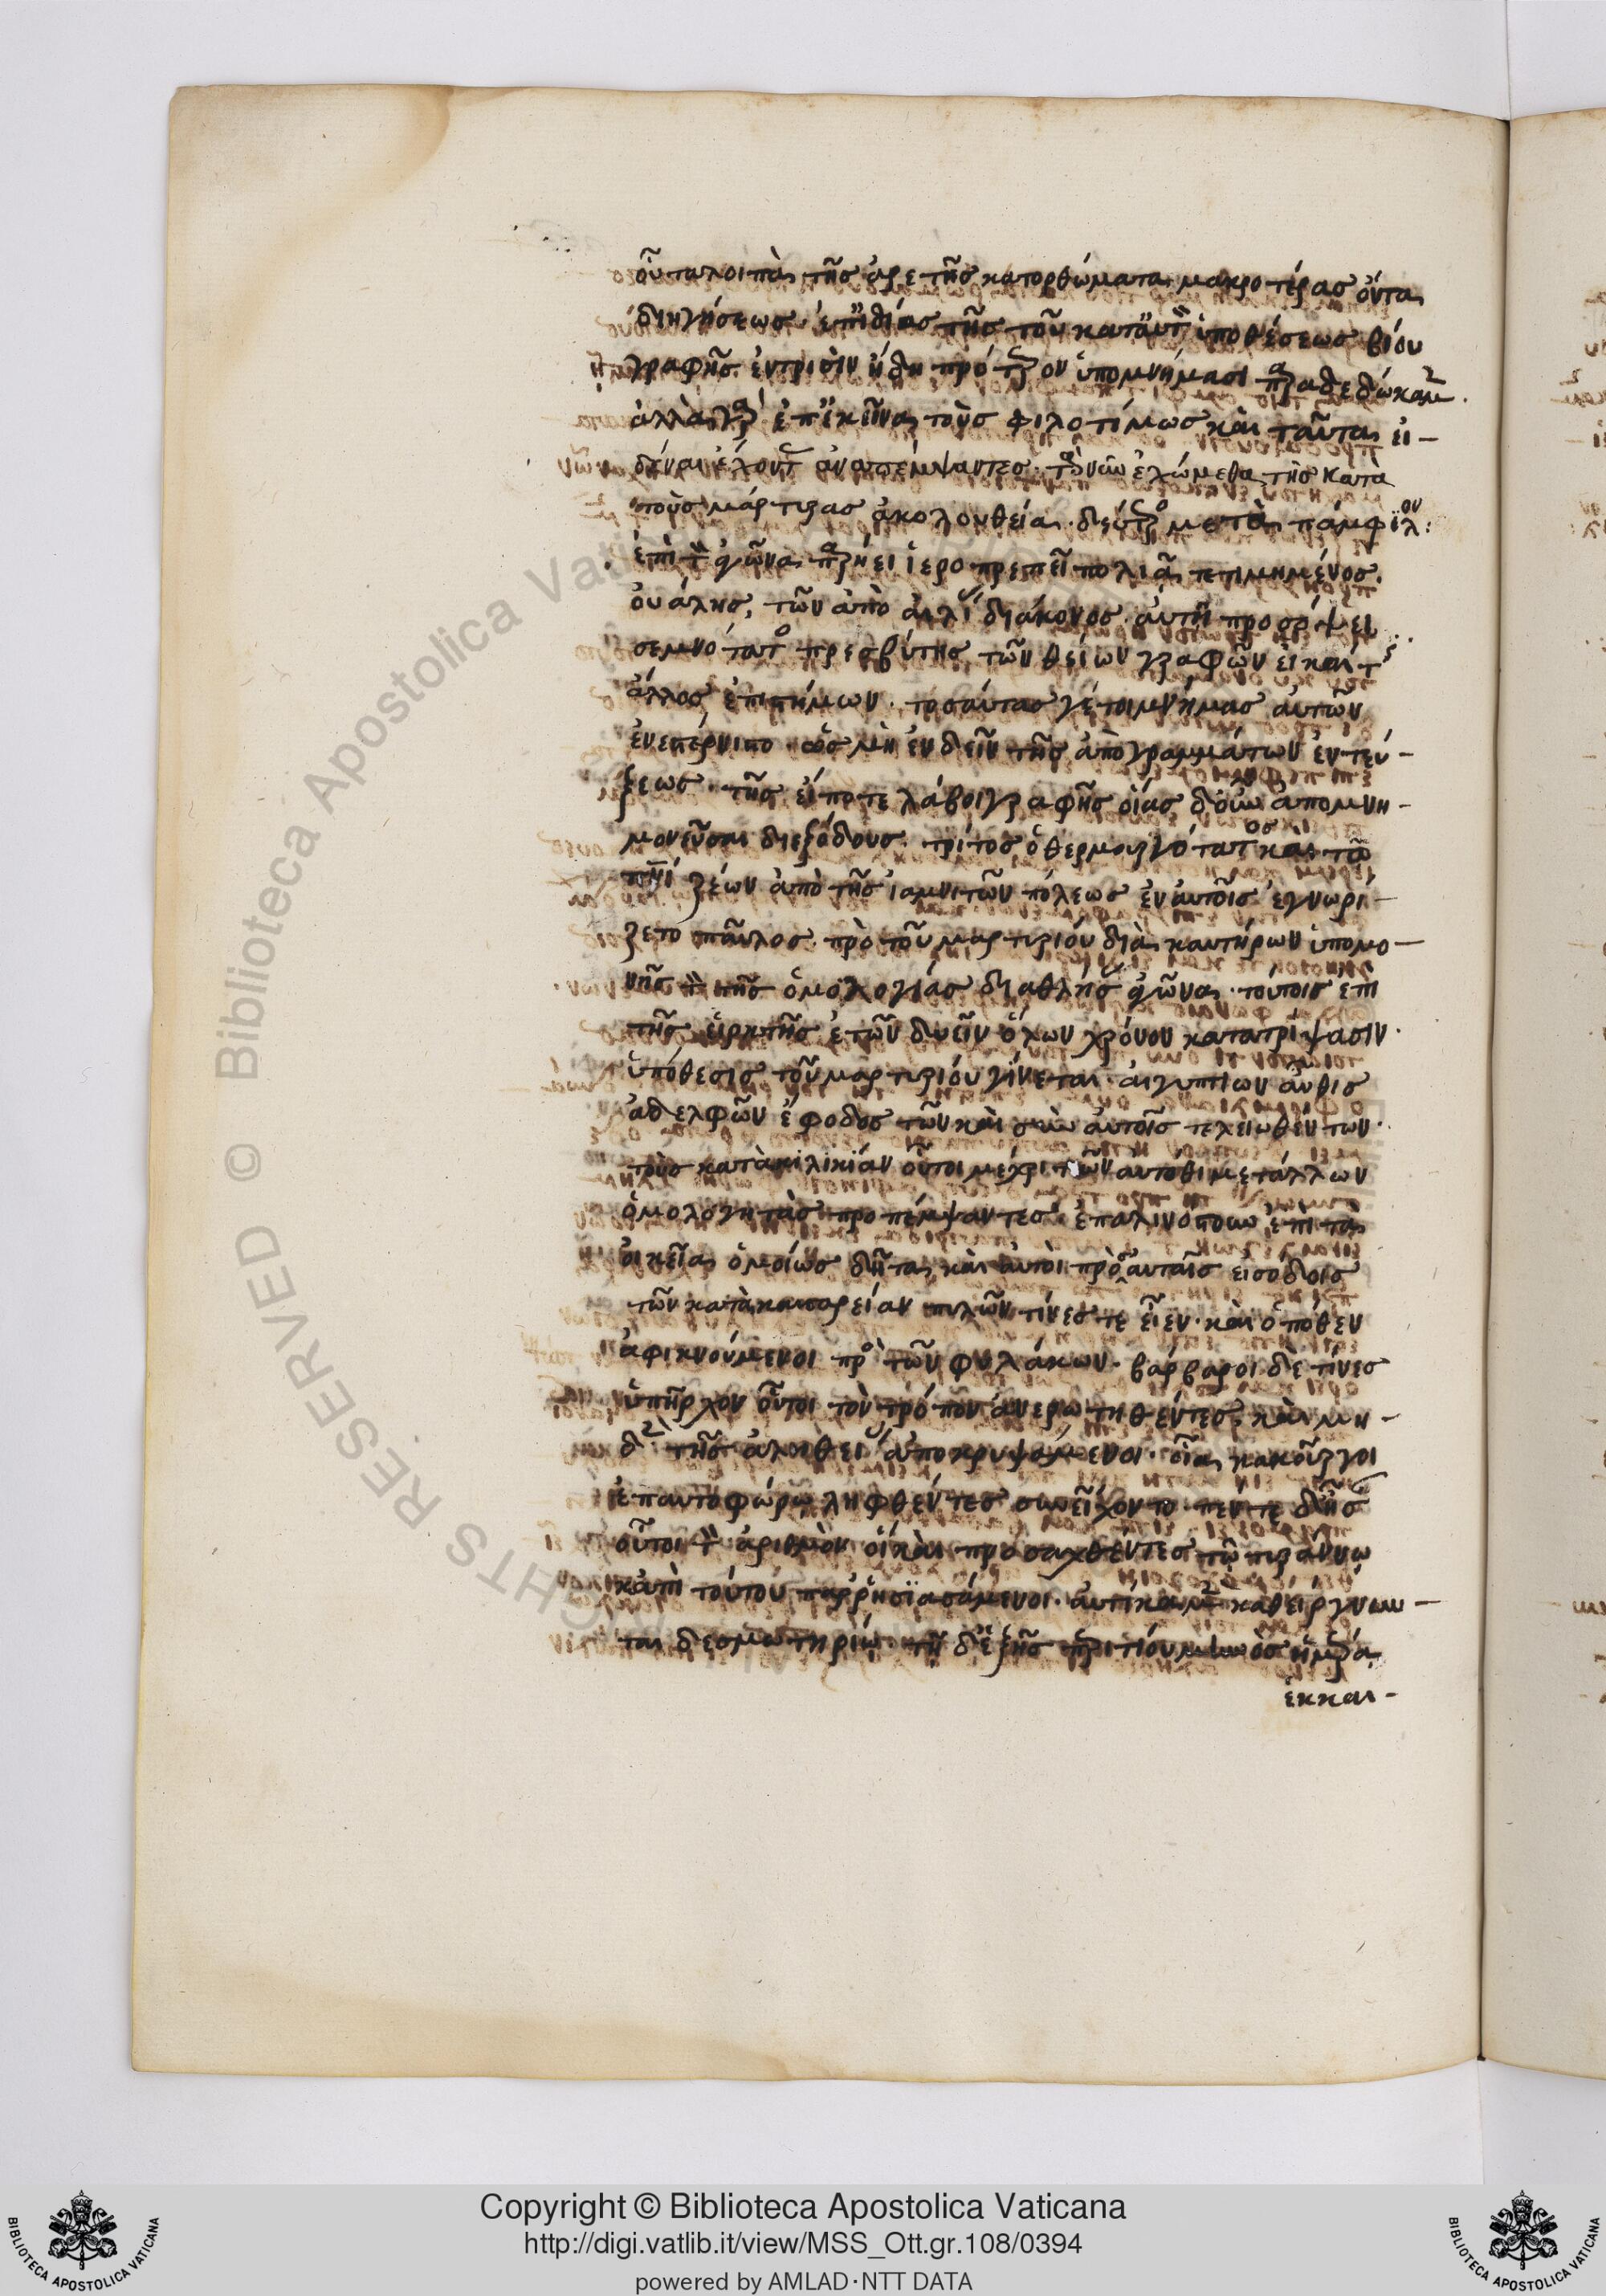 οὗ τὰ λοιπὰ τῆς ἀρετῆς κατορθώματα μακροτέρας ὄντα
διηγήσεως ἐπ' ἰδίας τῆς τοῦ κατ' αὐτὸν ὑποθέσεως βίου
γραφῆς ἐν τρισὶν ἤδη πρότερον ὑπομνήμασι παραδεδώκαμεν.
ἀλλὰ γὰρ ἐπ' ἐκεῖνα τοὺς φιλοτίμως καὶ ταῦτα εἰ-
δέναι ἔχοντας ἀναπέμψαντες. τανῦν ἐχώμεθα τῆς κατὰ
τοὺς μάρτυρας ἀκολουθείας. δεύτερος μετὰ πάμφιλον
ἐπὶ τὸν ἀγῶνα παρήει ἱεροπρεπεῖ πολιᾷ τετιμημένος.
οὐάλης, τῶν ἀπὸ αἰλίας διάκονος. αὐτῇ προσόψει
σεμνότατος πρεσβύτης τῶν θείων γραφῶν εἰ καί τις
ἄλλος ἐπιστήμων. τοσαύτας γέ τοι μνήμας αὐτῶν
ἐνεστέρνιστο. ὡς μὴ ἐνδεῖν τῆς ἀπὸ γραμμάτων ἐντεύ-
ξεως. τῆς εἴποτε λάβοι γραφῆς οἵας δ' οὖν ἀπομνη-
μονεῦσαι διεξόδους. τρίτος ὁ θερμουργότατος καὶ τῷ
πνι ζέων ἀπὸ τῆς ἰαμνιτῶν πόλεως ἐν αὐτοῖς ἐγνωρί-
ζετο παῦλος. πρὸ τοῦ μαρτυρίου διὰ καυτήρων ὑπομο-
νῆς τὸν τῆς ὁμολογίας διαθλήσας ἀγῶνα. τούτοις ἐπὶ
τῆς εἱρκτῆς ἐτῶν δυεῖν ὅλων χρόνον κατατρίψασιν.
ὑπόθεσις τοῦ μαρτυρίου γίνεται. αἰγυπτίων αὖθις
ἀδελφῶν ἔφοδος τῶν καὶ σὺν αὐτοῖς τελειωθέντων.
τοὺς κατὰ κιλικίαν οὗτοι μέχρι τῶν αὐτόθι μετάλλων
ὁμολογητὰς προπέμψαντες ἐπαλινόστουν ἐπὶ τὰ
οἰκεῖα ὁμοίως δῆτα καὶ αὐτοὶ πρὸς αὐταῖς εἰσόδοις
τῶν κατὰ καισαρείαν πυλῶν τίνες τε εἶεν. καὶ ὁπόθεν
ἀφικνούμενοι πρὸς τῶν φυλάκων. βάρβαροι δέ τινες
ὑπῆρχον οὗτοι τὸν τρόπον ἀνερωτηθέντες, καὶ μη-
δὲν τῆς ἀληθείας ἀποκρυψάμενοι. οἷα κακοῦργοι
ἐπαυτοφώρῳ ληφθέντες συνείχοντο. πέντε δ' ἦσαν
οὗτοι τὸν ἀριθμὸν οἳ καὶ προσαχθέντες τῷ τυράννῳ
κἀπὶ τούτου παρρησιασάμενοι. αὐτίκα μὲν καθείργνυν-
ται δεσμωτηρίῳ. τῇ δ' ἑξῆς περιτίου μηνὸς ἡμέρα
ἑκκαι-
Copyright © Biblioteca Apostolica Vaticana
http://digi.vatlib.it/view/MSS_Ott.gr.108/0394
powered by AMLAD·NTT DATA